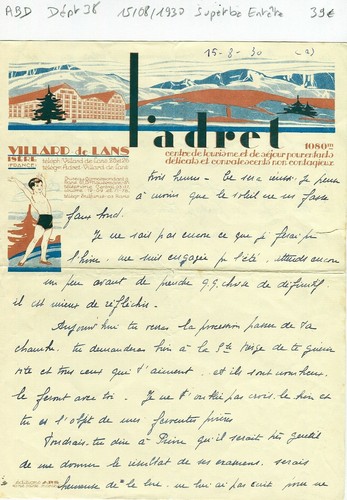 ABD Dépt 38 15/08/1930 Superbe Entête 39€
15-8-30 (2)
l'adret
1080m
VILLARD de LANS
ISERE
(FRANCE)
centre de tourisme et de séjour pour enfants
délicats et convalescents non contagieux
trois heures - Ce sera aussi. Je pense
à moins que le soleil ne se fasse
faux bond.
Je ne sais pas encore ce que je ferai pr
l'hiver, me suis engagée pr l'été, attends encore
un peu avant de prendre q.q. chose de définitif
il est mieux de réfléchir.
Aujourd'hui tu verras la procession passer de ta
chambre, tu demanderas bien à la Ste Vierge de te guérir
vite et tous ceux qui t'aiment et ils sont nombreux
le feront avec toi. Je ne t'oublie pas crois-le bien et
tu es l'objet de mes ferventes prières
Voudrais-tu dire à Pierre qu'il serait très gentil
de me donner le résultat de ses examens, serais
heureuse de le lire. ne lui ai pas écrit pour ne